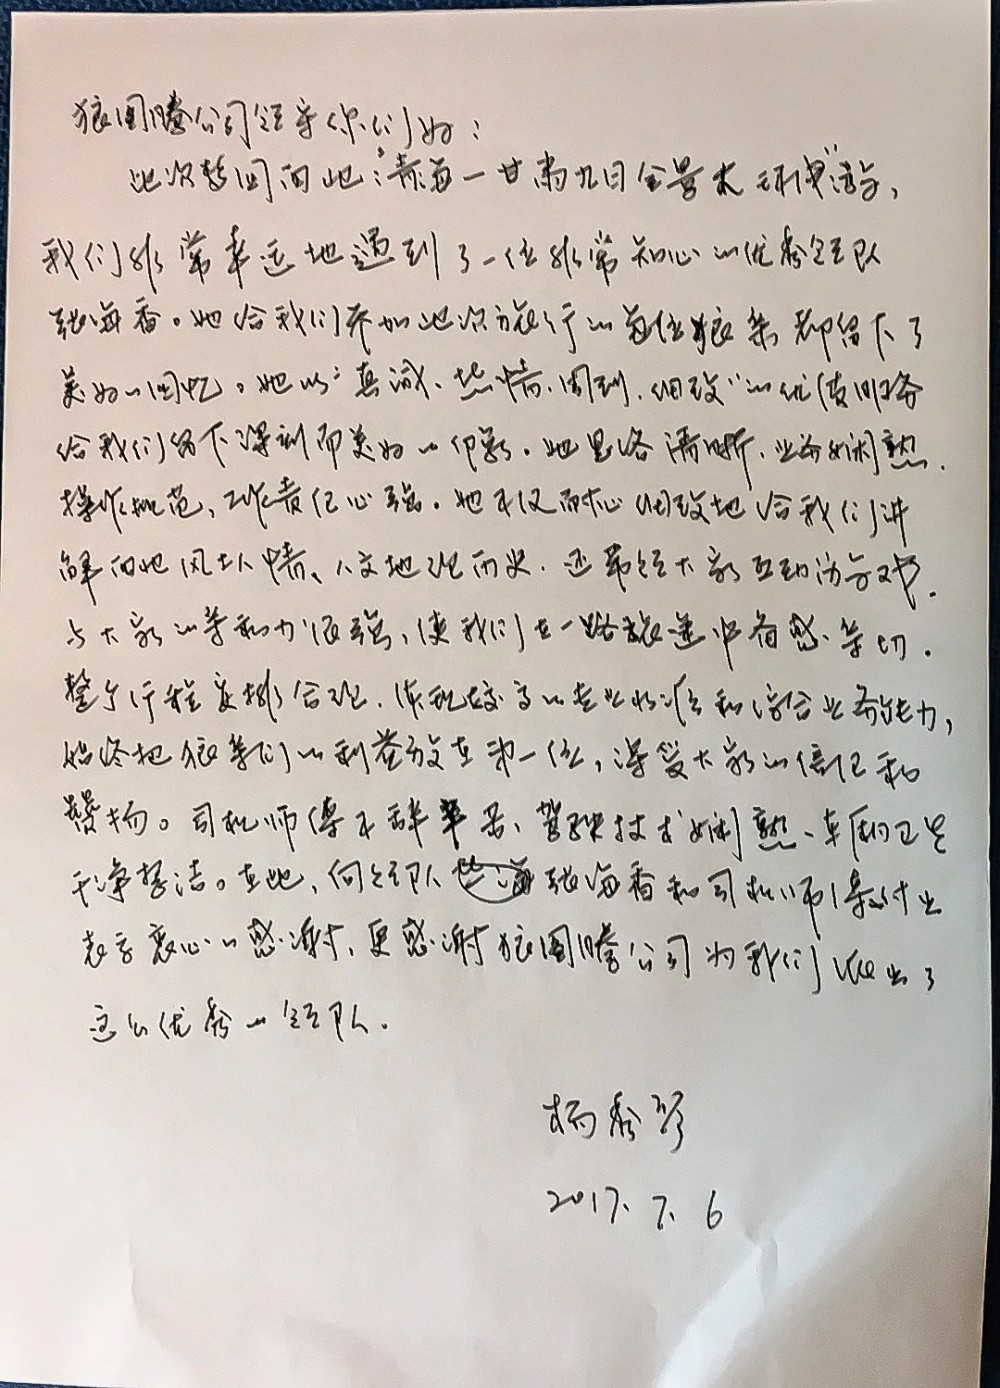 狼图腾公司领导你们好:
此次梦回西地"青海一甘肃九日全景大环线"游,
我们非常幸运地遇到了一位非常知心的优秀领队
张海香。她给我们参加此次旅行的每位狼亲都留下了
美好的回忆。她以"真诚、热情、周到、细致"的优质服务
给我们留下深刻而美好的印象。她思路清晰、业务娴熟、
操作规范、工作责任心强。她不仅耐心细致地给我们讲
解西北风土人情、人文地理历史、还带领大家互动游戏。
与大家的亲和力很强、使我们在一路旅途中备感亲切。
整个行程安排合理、体现较高的专业水准和综合业务能力,
始终把狼亲们的利益放在第一位,深受大家的信任和
赞扬。司机师傅不辞辛苦、驾驶技术娴熟、车厢卫生
干净整洁。在此、向领队张海香和司机师傅付出
表示衷心的感谢、更感谢狼图腾公司为我们派出了
这么优秀的领队。
杨秀琴
2017.7.6